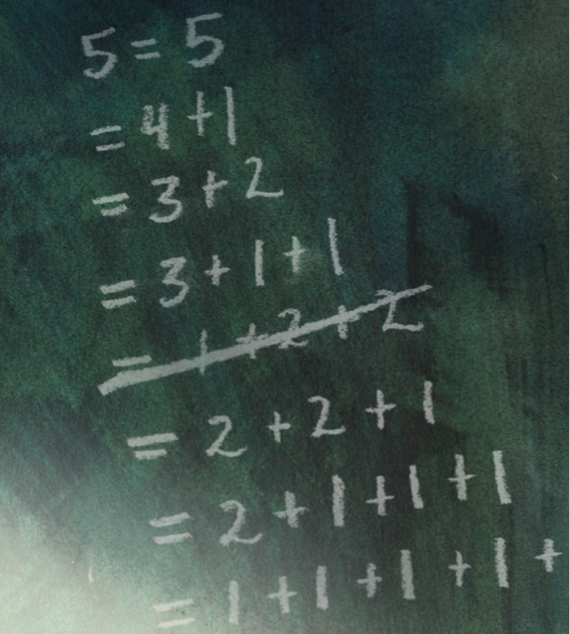 5 = 5
= 4 + 1
= 3 + 2
= 3 + 1 + 1
= 1 + 2 + 2
= 2 + 2 + 1
= 2 + 1 + 1 + 1
= 1 + 1 + 1 + 1 +